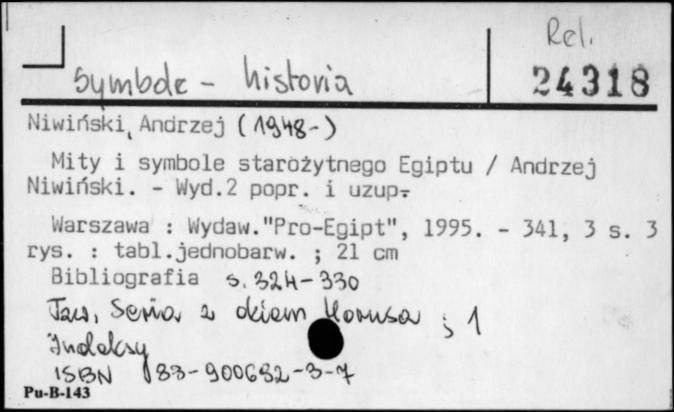 Rel.
Symbole - historia
24318
Niwiński, Andrzej (1948-)
Mity i symbole starożytnego Egiptu / Andrzej
Niwiński. - Wyd.2 popr. i uzup.
Warszawa : Wydaw."Pro-Egipt", 1995. - 341, 3 s. 3
rys. : tabl.jednobarw. ; 21 cm
Bibliografia s. 324-330
Seria z okiem Horusa ; 1
Indeksy
ISBN 83-900632-3-7
Pu-B-143